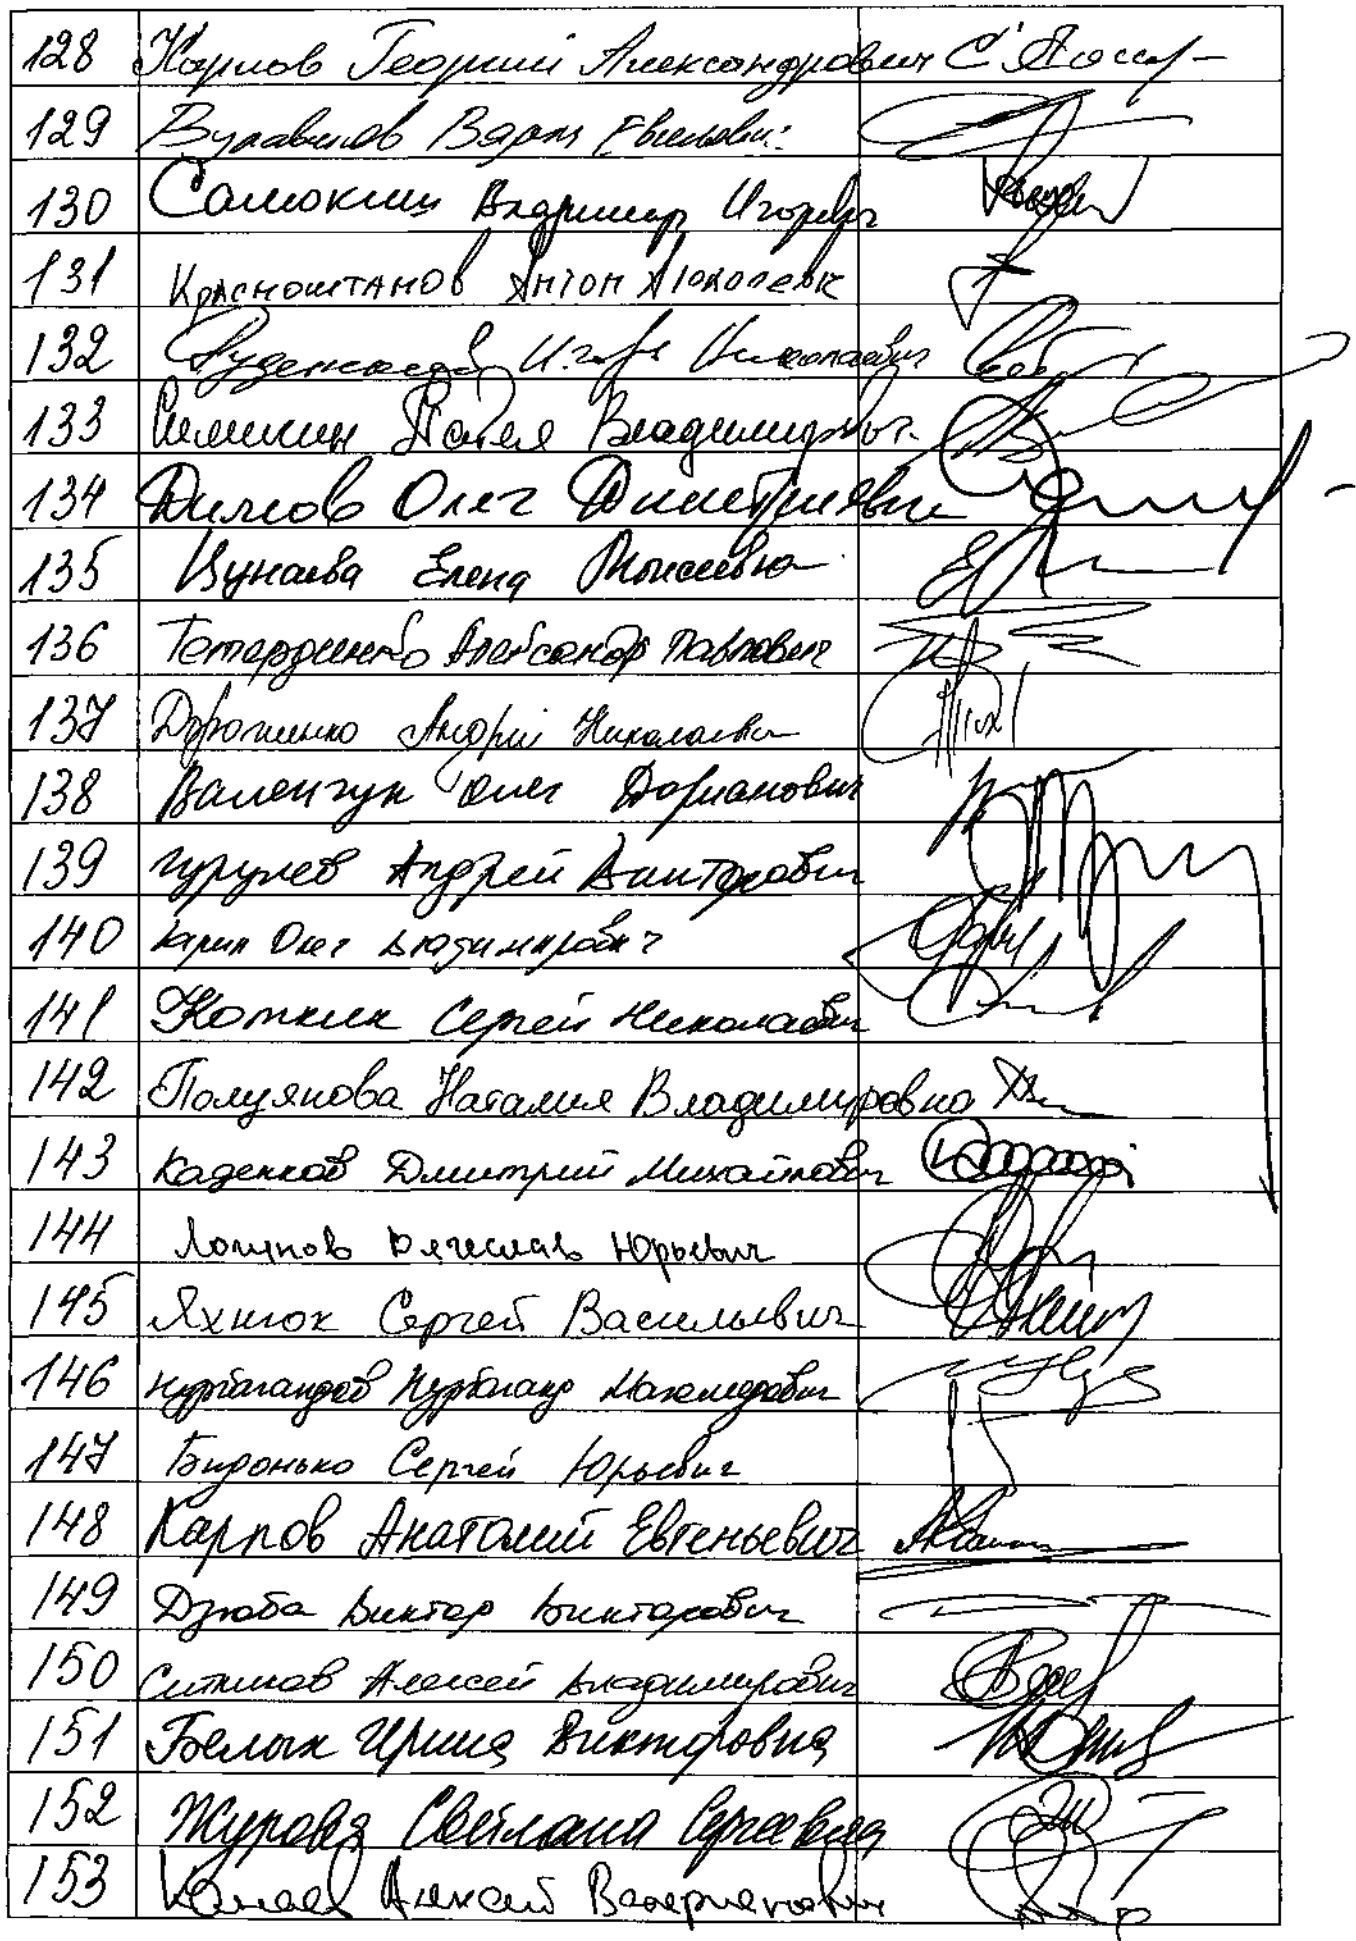 128 Карлов Георгий Александрович
129 Булавинов Вадим Евгеньевич
130 Самокиш Владимир Игоревич
131 Красноштанов Антон Алексеевич
132 Игорь Николаевич
133 Симигин Павел Владимирович
134 Димов Олег Дмитриевич
135 Цунаева Елена Моисеевна
136 Тетердинко Александр Павлович
137 Дорошенко Андрей Николаевич
138 Валенчук Олег Дорианович
139 Гурулев Андрей Викторович
140 Гарин Олег Владимирович
141 Коткин Сергей Николаевич
142 Полуянова Наталия Владимировна
143 Каденков Дмитрий Михайлович
144 Логинов Вячеслав Юрьевич
145 Яхнюк Сергей Васильевич
146 Нурбагандов Нурбаганд Магомедович
147 Бидонько Сергей Юрьевич
148 Карпов Анатолий Евгеньевич
149 Дзюба Виктор Викторович
150 Ситников Алексей Владимирович
151 Белых Ирина Викторовна
152 Журова Светлана Сергеевна
153 Канаев Алексей Валерианович